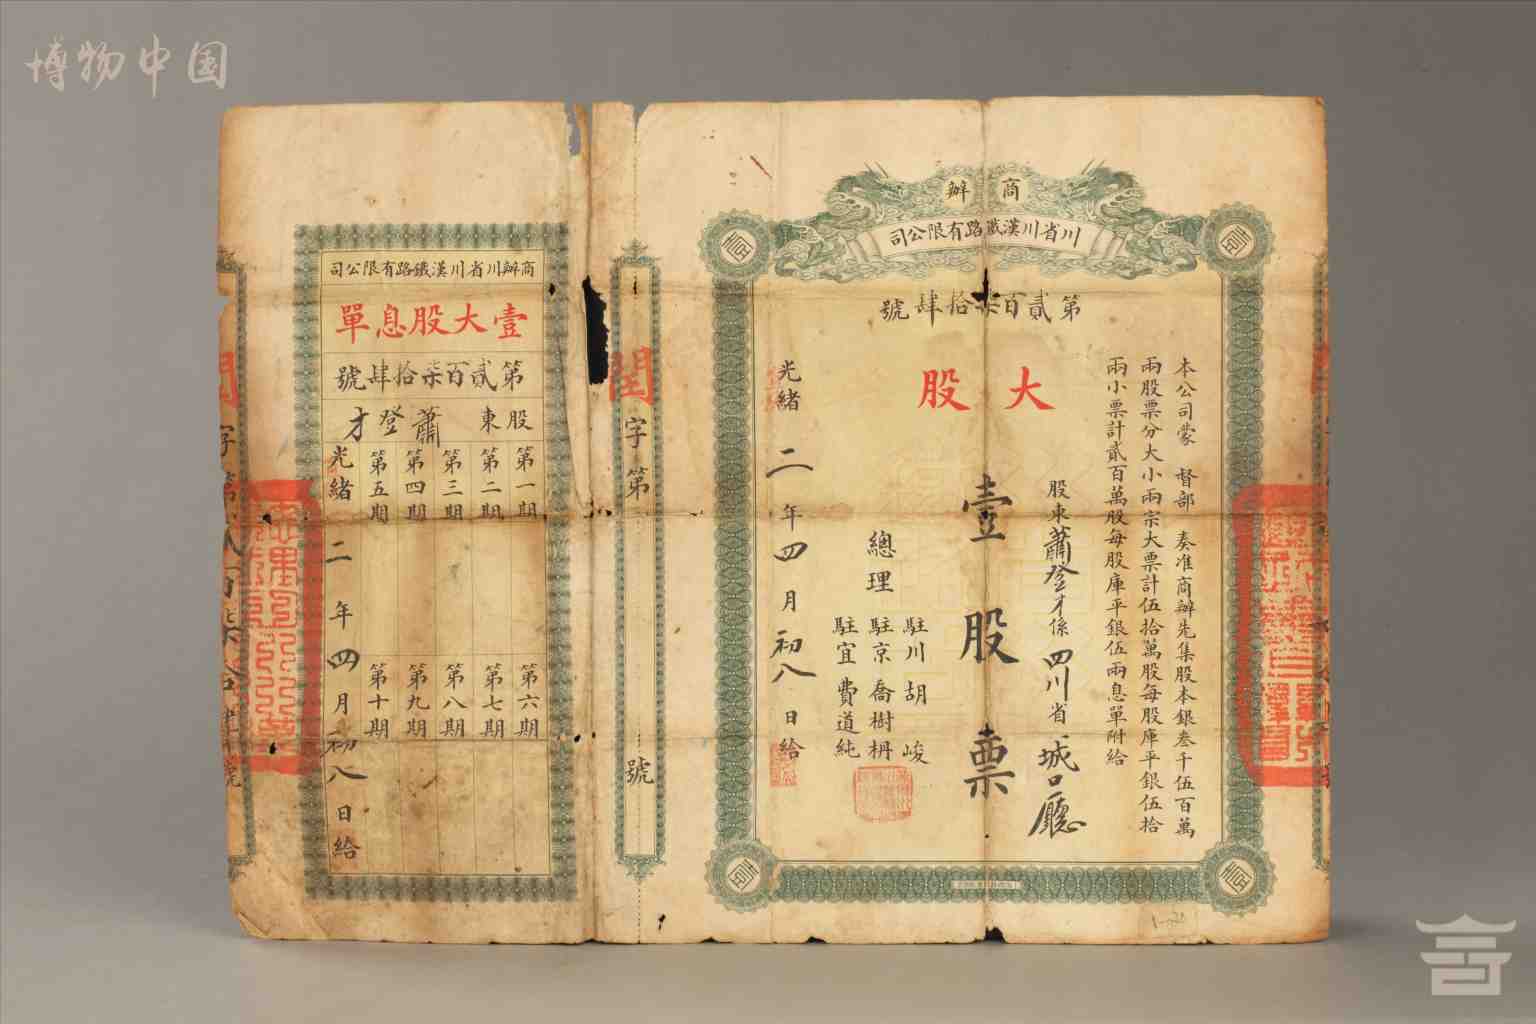 博物中国
商辦
川省川漢鐵路有限公司
第貳百柒拾肆號
大股
本公司蒙 督部 奏准商辦先集股本銀叁千伍百萬
兩股票分大小兩宗大票計伍拾萬股每股庫平銀伍拾
兩小票計貳百萬股每股庫平銀伍兩息單附給
股東蕭登才係四川省城口廳
壹股票
總理
駐川胡峻
駐京喬樹枬
駐宜費道純
光緒二年四月初八日給
閏字第 號
商辦川省川漢鐵路有限公司
壹大股息單
第貳百柒拾肆號
股東蕭登才
第一期
第二期
第三期
第四期
第五期
第六期
第七期
第八期
第九期
第十期
光緒二年四月初八日給
字第貳百柒拾肆號